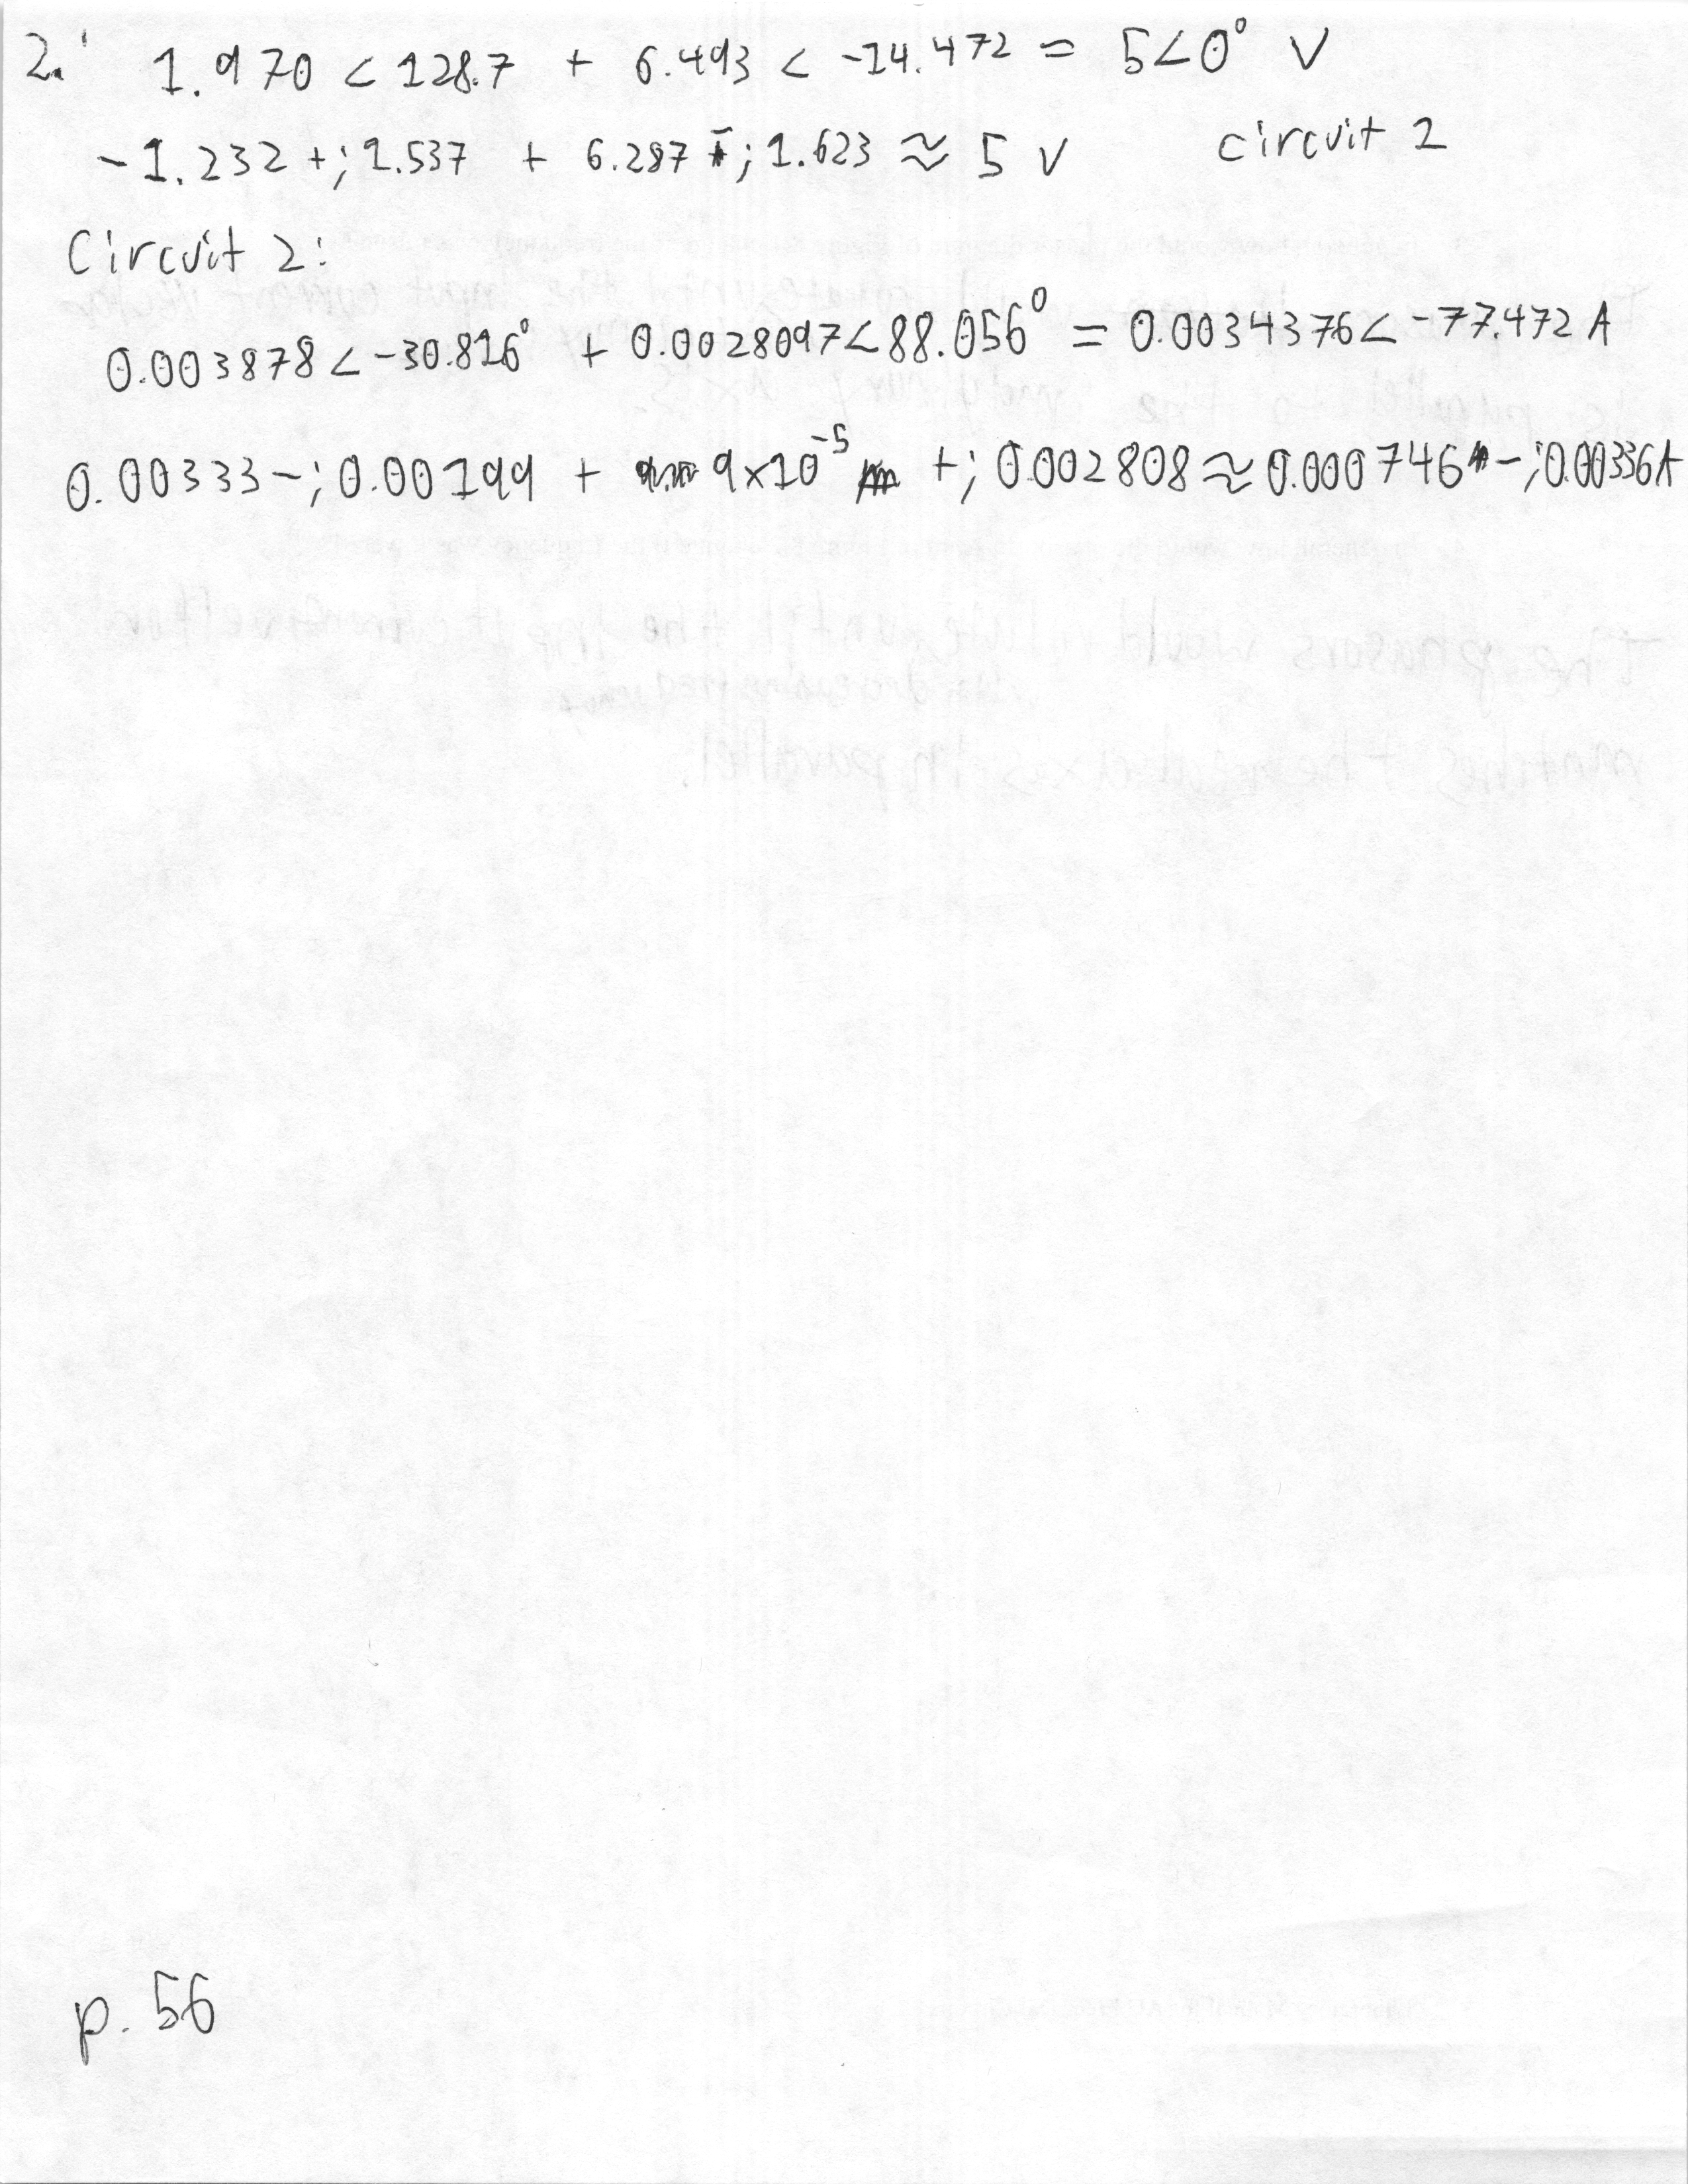 2. 1.970 < 128.7 + 6.493 < -14.472 = 5<0° V
-1.232 +j 1.537 + 6.287 -j 1.623 ≈ 5 V circuit 2
Circuit 2:
0.003878 < -30.816° + 0.0028097<88.056° = 0.0034376< -77.472 A
0.00333 -j 0.00199 + 9x10⁻⁵ +j 0.002808 ≈ 0.000746 -j0.00336A
p. 56